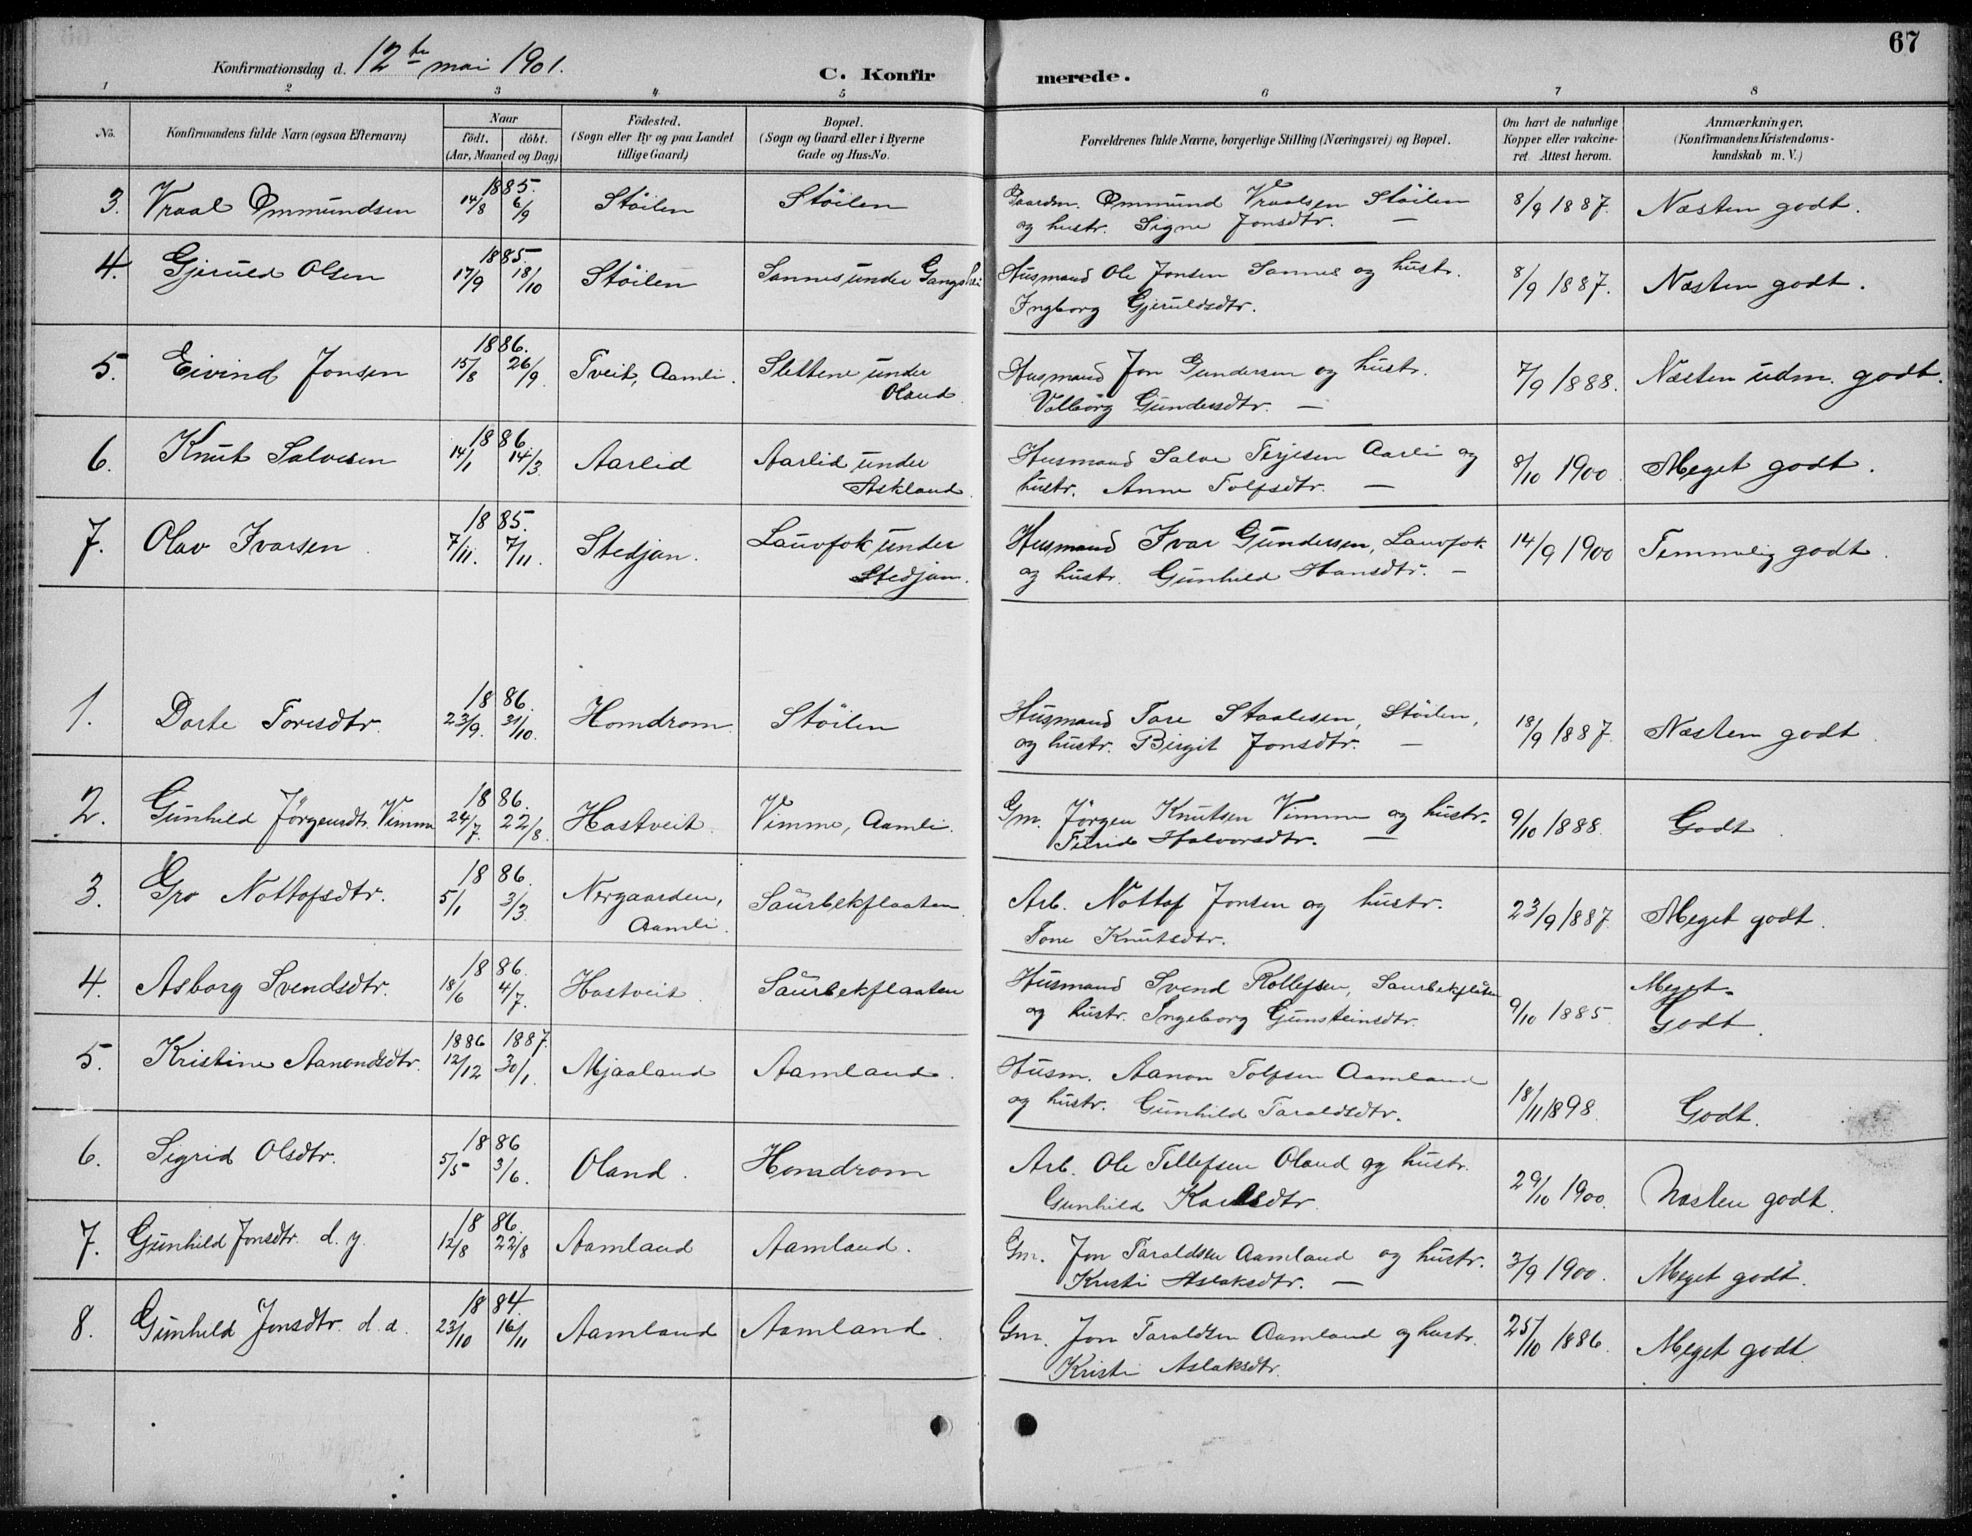 67
Konfirmationsdag d. 12te mai 1901.
C. Konfirmerede.
1 2 3 4 5 6 7 8
No.
Konfirmandens fulde Navn (ogsaa Efternavn)
Naar
födt. döbt.
(Aar, Maaned og Dag)
Födested.
(Sogn eller By og paa Landet
tillige Gaard)
Bopæl.
(Sogn og Gaard eller i Byerne
Gade og Hus-No.
Forældrenes fulde Navne, borgerlige Stilling (Næringsvei) og Bopæl.
Om havt de naturlige
Kopper eller vakcine-
ret Attest herom.
Anmærkninger,
(Konfirmandens Kristendoms-
kundskab m. V.)
3. Vraal Ommundsen 1885. 14/8 6/9 Stöilen Stöilen Gaardm. Ommund Vraalsen Stöilen 8/9 1887. Næsten godt.
og hustr. Signe Jonsdtr. —
4. Gjeruld Olsen 1885. 17/9 18/10 Stöilen Sannes under Gangshei Husmand Ole Jonsen Sannes og hustr. 8/9 1887. Næsten godt.
Ingborg Gjeruldsdtr.
5. Eivind Jonsen 1886. 15/8 26/9 Tveit, Aamli. Slettene under Husmand Jon Gundersen og hustr. 7/9 1888. Næsten udm. godt.
Oland Valborg Gundersdtr. —
6. Knut Salvesen 1886. 14/1 14/3 Aarlid Aarlid under Husmand Salve Terjesen Aarli og 8/10 1900 Meget godt.
Askland. hustr. Anne Tolfsdtr. —
7. Olav Ivarsen 1885. 7/11. 7/11. Stedjan. Lauvfok under Husmand Ivar Gundersen, Lauvfok 14/9 1900 Temmelig godt.
Stedjan. og hustr. Gunhild Hansdtr. —
1. Dorte Toresdtr. 1886. 23/9. 31/10. Homdrom Stöilen Husmand Tore Staalesen, Stöilen, 18/9 1887 Næsten godt
og hustr. Birgit Jonsdtr. —
2. Gunhild Jörgensdtr. Vimme 1886. 24/7. 22/8. Hastveit. Vimme, Aamli. Gm. Jörgen Knutsen Vimme og hustr. 9/10 1888. Godt.
Halvorsdtr. —
3. Gro Nottofsdtr. 1886. 5/1 3/3. Nergaarden, Saurbekflaaten Arb. Nottof Jonsen og hustr. 23/9 1887. Meget godt.
Aamli. Tone Knutsdtr.
4. Asborg Svendsdtr. 1886. 18/6 4/7. Hastveit. Saurbekflaaten Husmand Svend Rollefsen, Saurbekflaten 9/10 1885. Meget
og hustr. Ingeborg Gunsteinsdtr. Godt.
5. Kristine Aanondsdtr. 1886 12/12 1887. 30/1. Mjaaland Aamland. Husm. Aanon Tolfsen Aamland 18/11 1898. Godt.
og hustr. Gunhild Taraldsdtr.
6. Sigrid Olsdtr. 1886 5/5 3/6. Oland. Homdrom Arb. Ole Tellefsen Oland og hustr. 29/10 1900. Næsten godt.
Gunhild
7. Gunhild Jonsdtr. d. y. 1886. 12/8 22/8 Aamland Aamland. Gm. Jon Taraldsen Aamland og hustr. 3/9 1900. Meget godt.
Kristi Aslaksdtr. —
8. Gunhild Jonsdtr. d. æ. 1884. 23/10 16/11 Aamland Aamland. Gm. Jon Taraldsen Aamland og hustr. 25/10 1886. Meget godt.
Kristi Aslaksdtr.